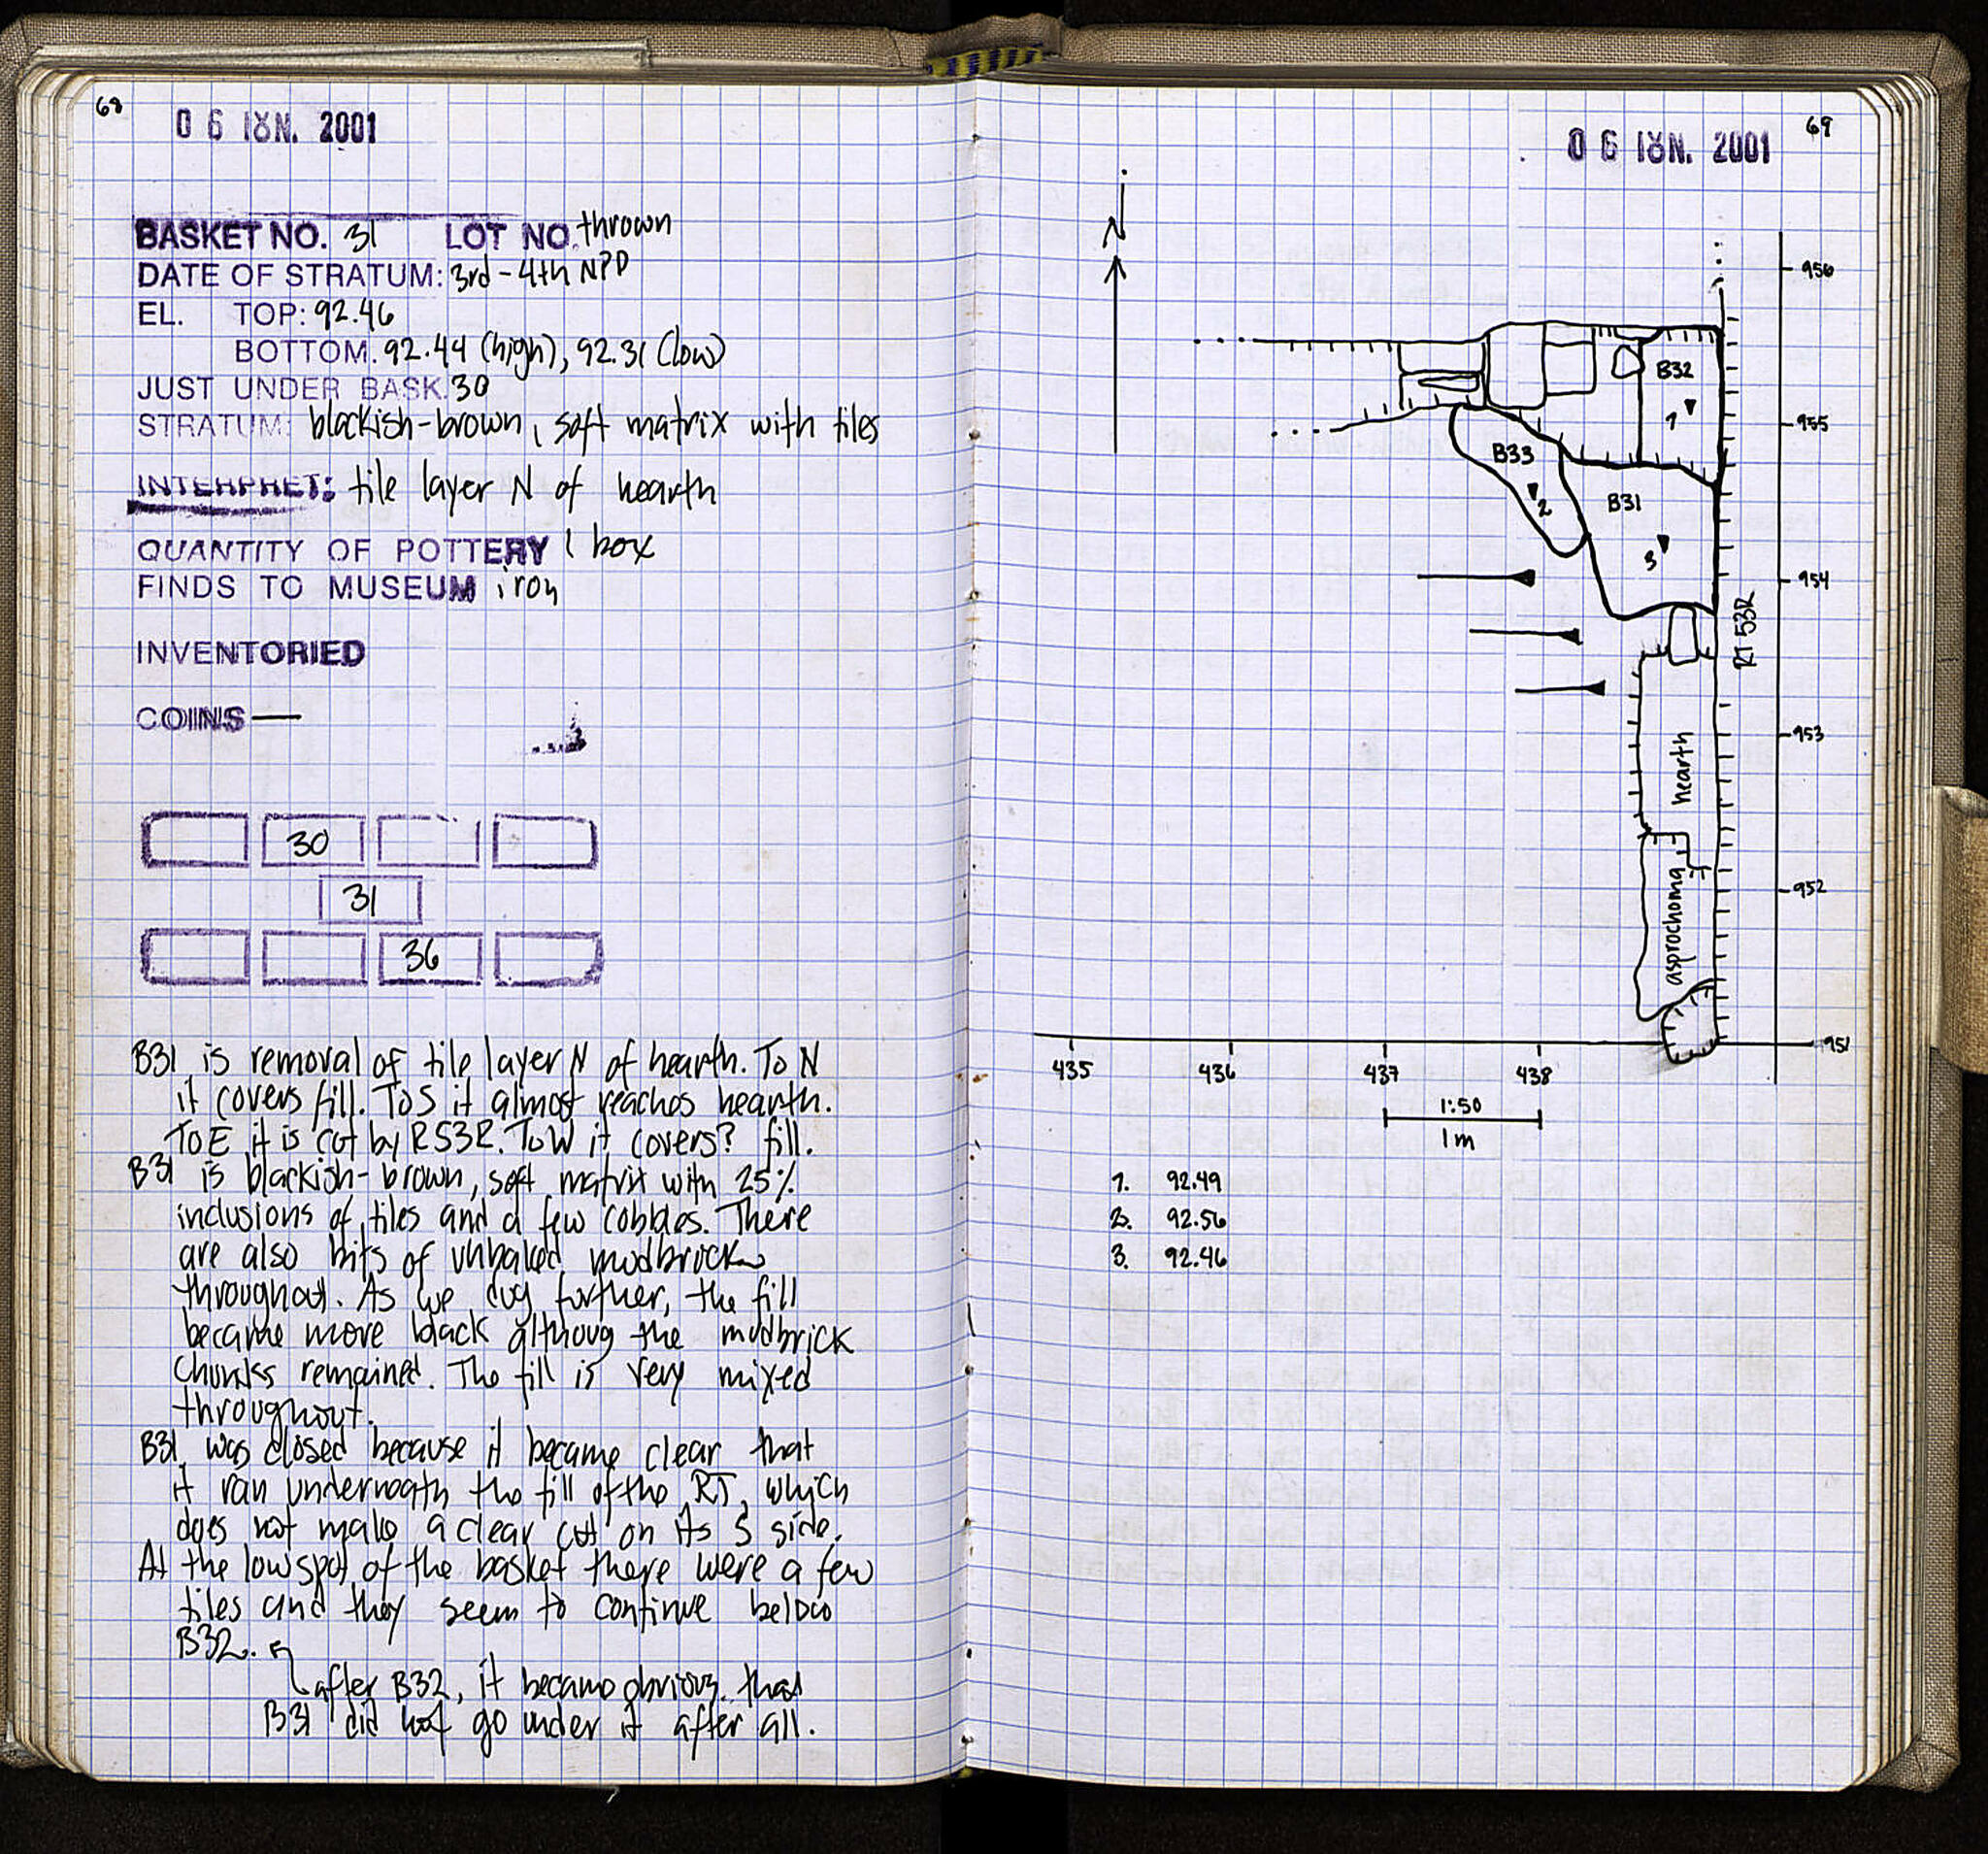 68
06 ΙȢΝ. 2001
BASKET NO. 31 LOT NO. thrown
DATE OF STRATUM: 3rd-4th NPD
EL. TOP: 92.46
BOTTOM. 92.44 (high), 92.31 (low)
JUST UNDER BASK. 30
STRATUM: blackish-brown, soft matrix with tiles
INTERPRET: tile layer N of hearth
QUANTITY OF POTTERY 1 box
FINDS TO MUSEUM iron
INVENTORIED
COINS —
30
31
36
B31 is removal of tile layer N of hearth. To N
it covers fill. To S it almost reaches hearth.
To E it is cut by R53R. To W it covers? fill.
B31 is blackish-brown, soft matrix with 25%
inclusions of tiles and a few cobbles. There
are also bits of unbaked mudbrick
throughout. As we dug further, the fill
became more black althoug the mudbrick
chunks remained. The fill is very mixed
throughout.
B31 was closed because it became clear that
it ran underneath the fill of the RT, which
does not make a clear cut on its S side.
At the low spot of the basket there were a few
tiles and they seem to continue below
B32.
after B32, it became obvious that
B31 did not go under it after all.
69
06 ΙȢΝ. 2001
N
956
B32
1
955
B33
2
B31
3
954
RT 53R
953
hearth
952
asprochoma
951
435 436 437 438
1:50
1m
1. 92.49
2. 92.56
3. 92.46